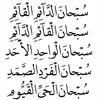 سُبْحَانَ الدَّآئِمِ الْقَآئِمِ
سُبْحَانَ الْقَآئِمِ الدَّآئِمِ
سُبْحَانَ الْوَاحِدِ الْأَحَدِ
سُبْحَانَ الْفَرْدِ الصَّمَدِ
سُبْحَانَ الْحَيِّ الْقَيُّومِ